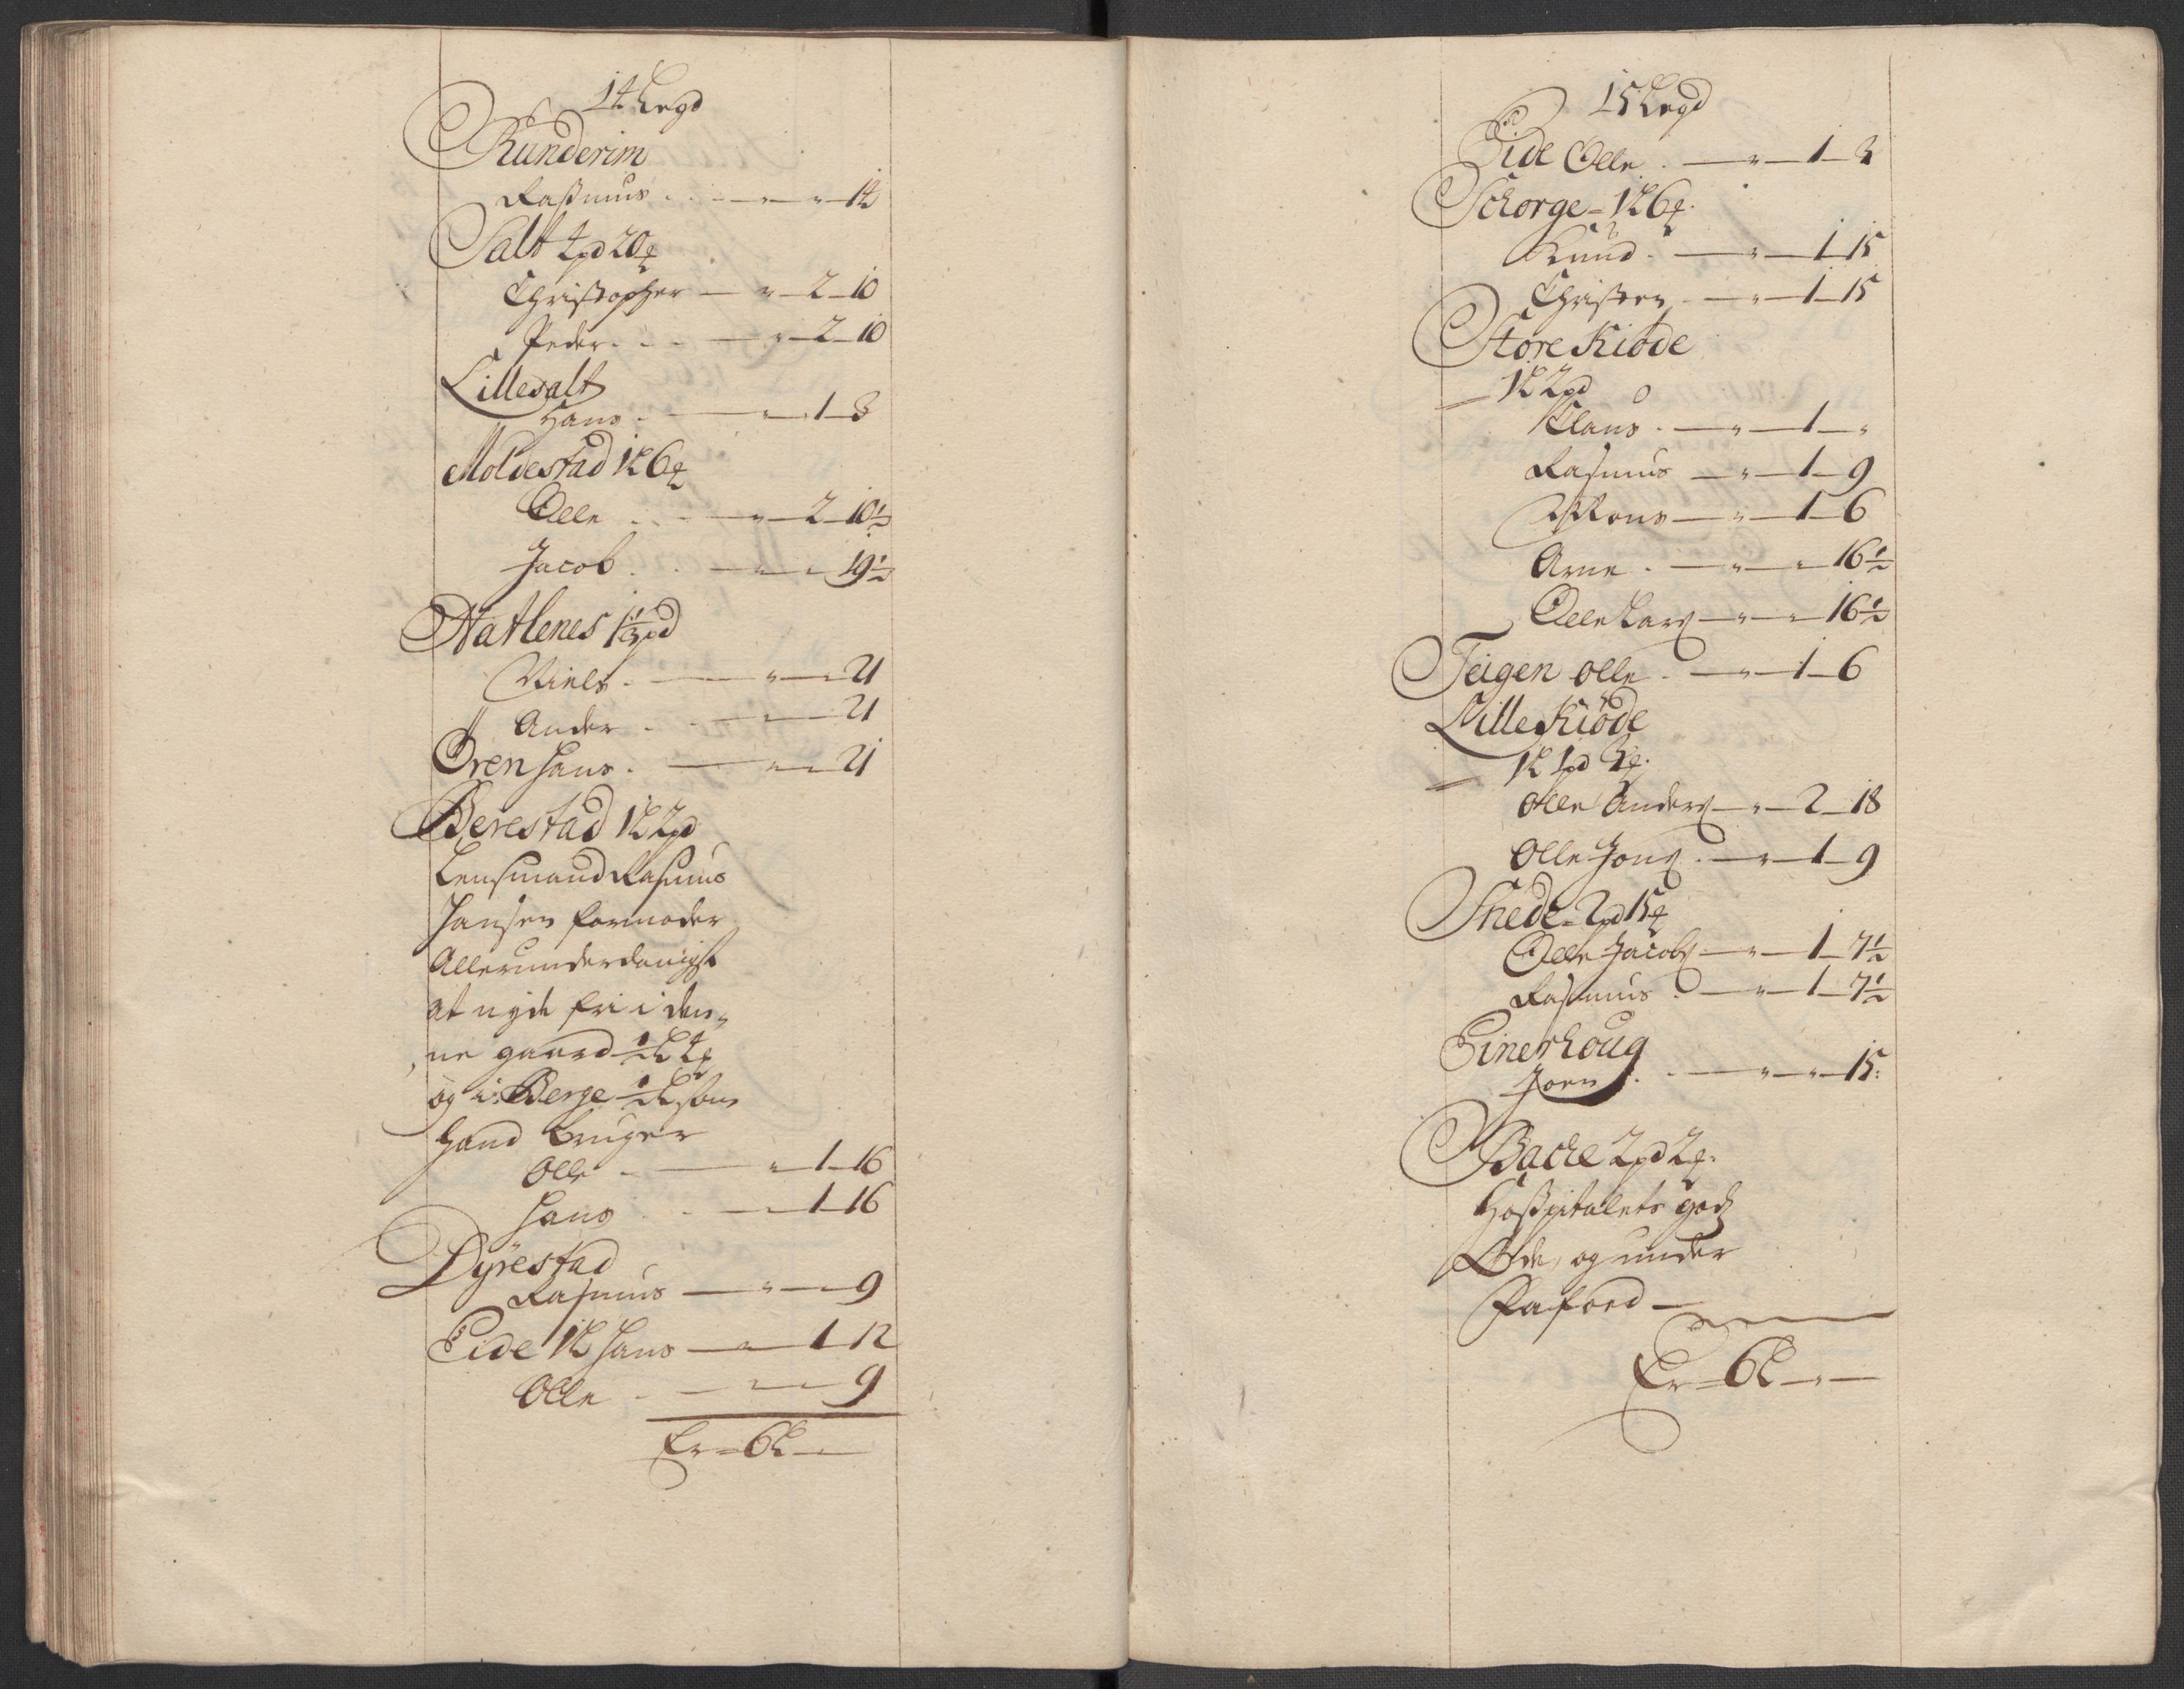 14 Legd
Runderim
Rasmus . . — „ — „ — 14
Salt 4 pd 20 ꝝ
Christopher — „ — 2 — 10
Peder . . . — „ — 2 — 10
Lillesalt
Hans . — „ — 1 — 3
Moldestad 1 L 6 ꝝ
Olle . . — „ — 2 — 10½
Jacob . . — „ — „ — 19½
Natlenes 1½ pd
Niels . — „ — 21
Ander . . — „ — 21
Øren Hans . — „ — „ 21
Berestad 1 L 2 pd
Lensmand Rasmus
Jansen formoder
Allerunderdanigst
at nyde fri i den„
ne gaard ½ L 4 ꝝ
og i Berge ½ L som
hand bruger
Olle . — „ — 1 — 16
Hans . . — „ — 1 — 16
Dyrestad
Rasmus — „ — „ — 9
Eide 1 L Hans — „ — 1 — 12
Olle . — „ — „ — 9
Er = 6 L — „ —
15 Legd
Eide Olle . — „ — 1 — 3
Schorge = 1 L 6 ꝝ.
Knud . — „ — 1 — 15
Christen . — „ — 1 — 15
Store Kiøde
1 L 2 pd
Claus . — „ — 1 — „
Rasmus — „ — 1 — 9
Mons — „ — 1 — 6
Arne . — „ — „ — 16½
Olle Lars — „ — „ — 16½
Teigen Olle . — „ — 1 — 6
Lille Kiøde
1 L 1 pd 3 ꝝ.
Olle Anders — „ — 2 — 18
Olle Jons . — „ — 1 — 9
Hede = 2 pd 15 ꝝ
Olle Jacobs — „ — 1 — 7½
Rasmus . — „ — 1 — 7½
Einerhoug
Joen . . — „ — „ — 15 :
Bache 2 pd 2 ꝝ.
Hosspitalets godz
Øde, og under
Er = 6 L — „ —